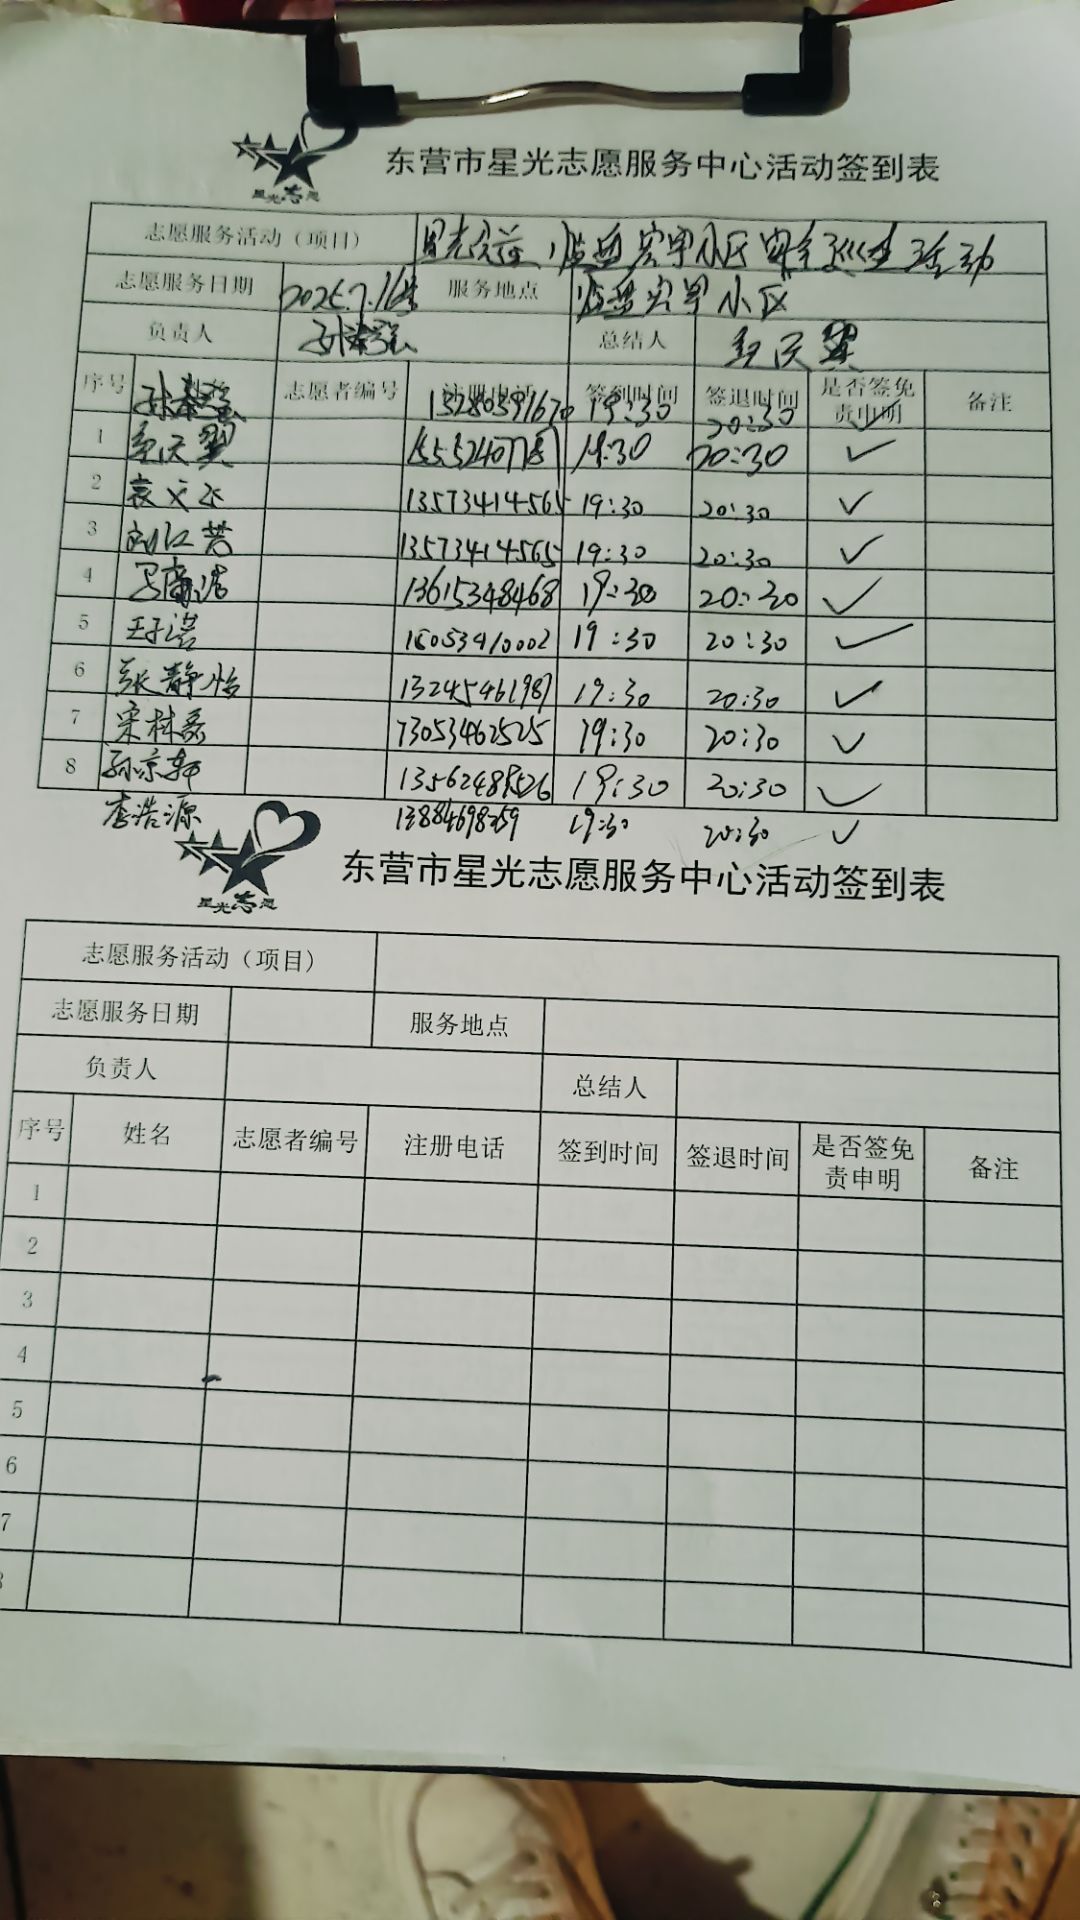 星光志愿
东营市星光志愿服务中心活动签到表
志愿服务活动（项目） 星光公益 临盘宏宇小区 活动
志愿服务日期 2025.7.16号 服务地点 临盘宏宇小区
负责人 总结人
序号 志愿者编号 注册电话 签到时间 签退时间 是否签免责申明 备注
19:30 20:30
1 19:30 20:30 ✓
2 13573414565 19:30 20:30 ✓
3 13573414565 19:30 20:30 ✓
4 13615348468 19:30 20:30 ✓
5 王子浩 18053410002 19:30 20:30 ✓
6 张静怡 13245461987 19:30 20:30 ✓
7 宋林磊 73053462525 19:30 20:30 ✓
8 孙京轩 19:30 20:30 ✓
李浩源 19:30 20:30 ✓
星光志愿
东营市星光志愿服务中心活动签到表
志愿服务活动（项目）
志愿服务日期 服务地点
负责人 总结人
序号 姓名 志愿者编号 注册电话 签到时间 签退时间 是否签免责申明 备注
1
2
3
4
5
6
7